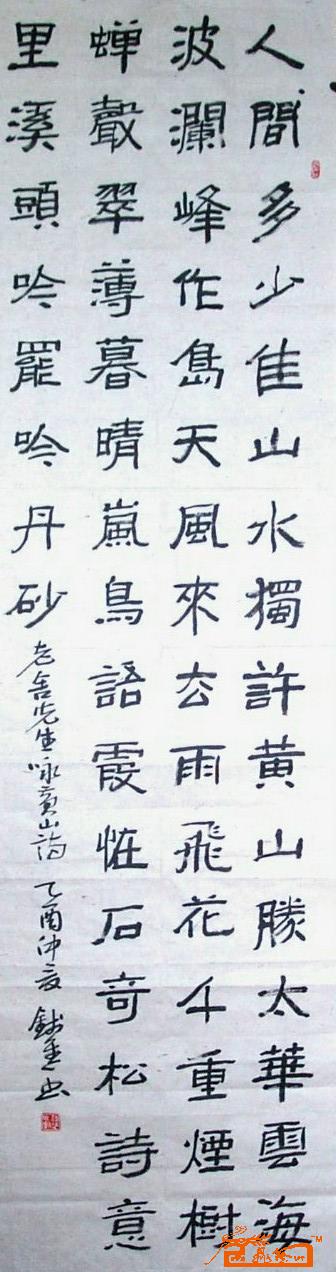 人間多少佳山水獨許黃山勝太華雲海
波瀾峰作島天風來去雨飛花千重煙樹
蟬聲翠薄暮晴嵐鳥語霞恠石奇松詩意
里溪頭吟罷吟丹砂
老舍先生咏黄山詩 乙酉仲夏 书